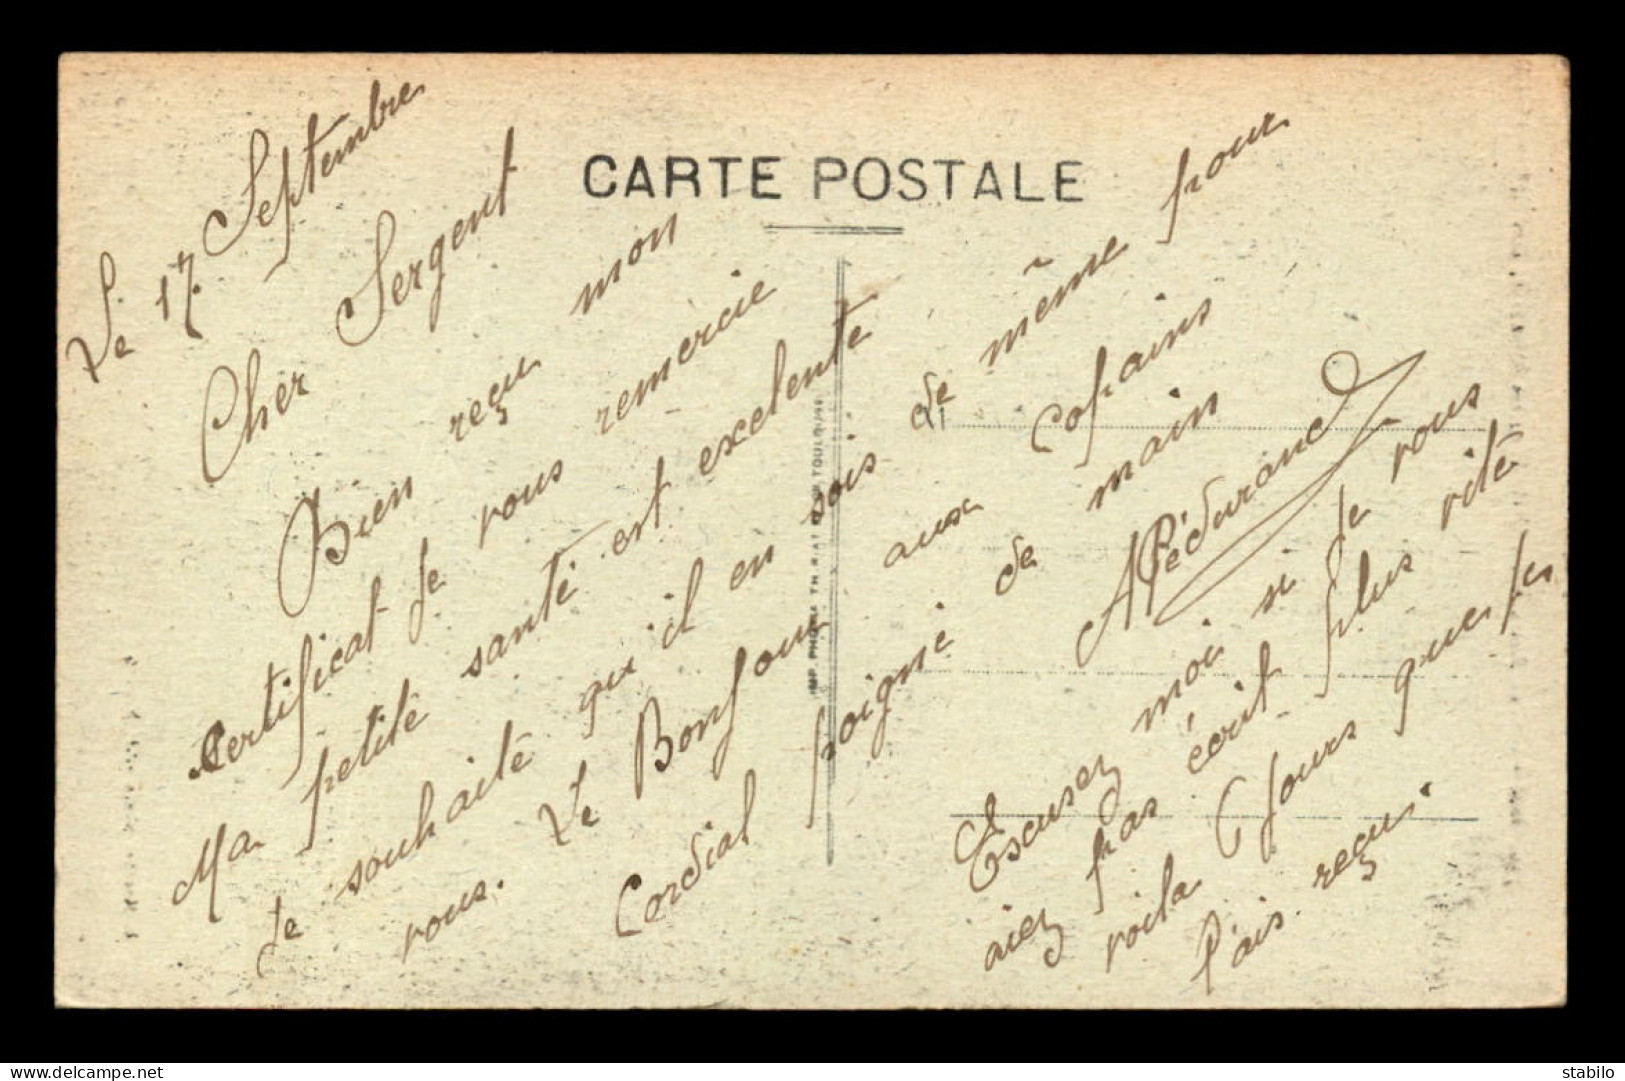 CARTE POSTALE
Le 17 Septembre
Cher Sergent
Bien reçu mon
Certificat je vous remercie
Ma petite santé est exelente
Je souhaite qu'il en sois de même pour
vous. Le Bonjour aux copains
Cordial poigné de main
APédurand
Escusez moi si je vous
aiez pas écrit plus vite
voila 6 jours que je
l'ais reçu.
delcampe.net
stabilo